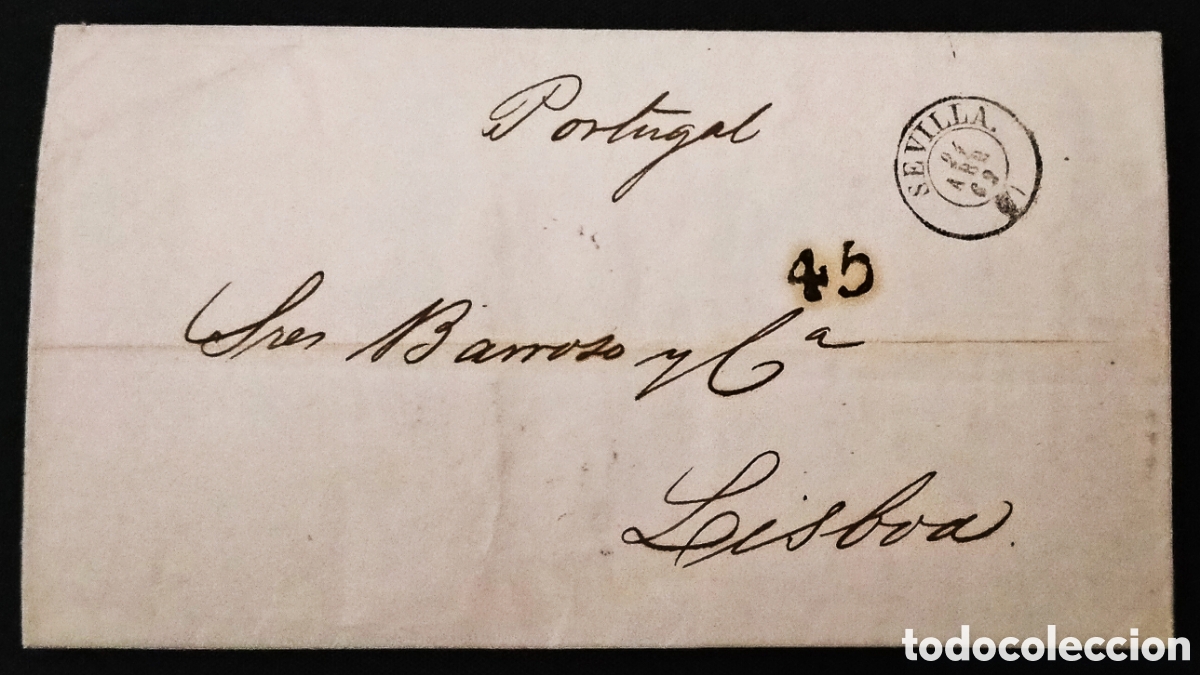 Portugal
SEVILLA.
ABR
45
Sres Barroso y Cª
Lisboa.
todocoleccion